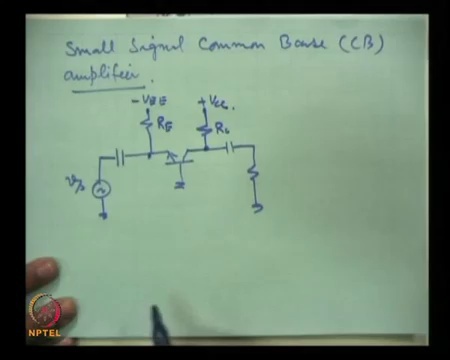 Small Signal Common Base (CB)
amplifier.
-VEE
+Vcc.
RE
Rc
vs
NPTEL